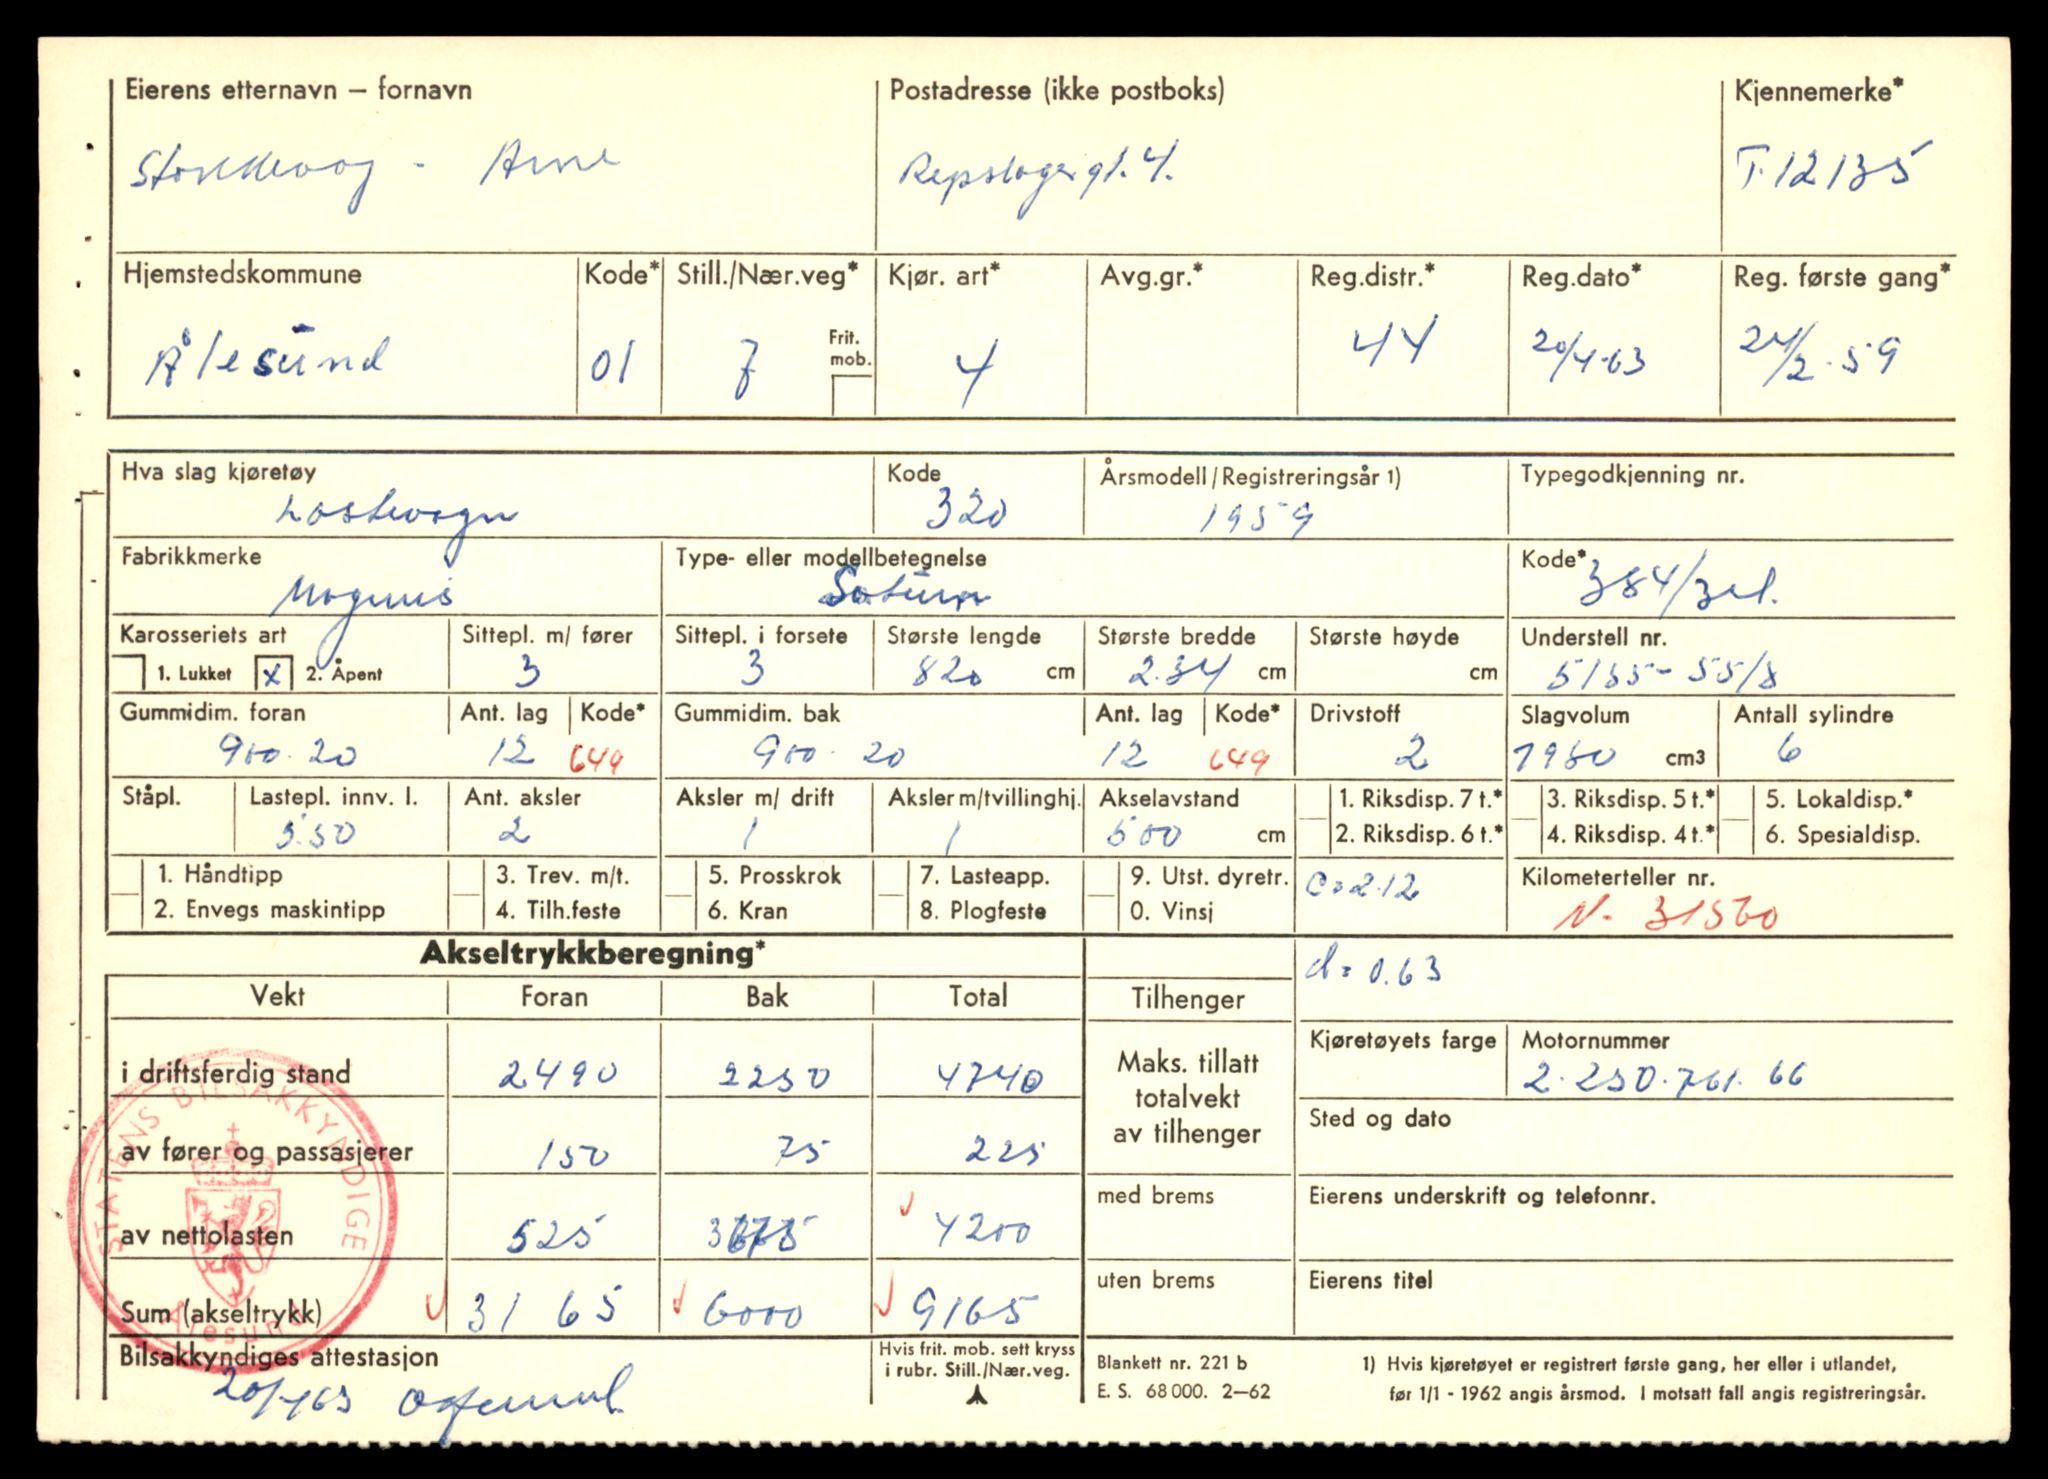 Eierens etternavn – fornavn
Postadresse (ikke postboks)
Kjennemerke*
Arne
Repslagergt. 4.
T-12135
Hjemstedskommune
Kode*
Still./Nær.veg*
Kjør. art*
Avg.gr.*
Reg.distr.*
Reg.dato*
Reg. første gang*
Ålesund
01
7
Frit. mob.
4
44
20/4-63
24/2-59
Hva slag kjøretøy
Kode
Årsmodell/Registreringsår 1)
Typegodkjenning nr.
Lastevogn
320
1959
Fabrikkmerke
Type- eller modellbetegnelse
Kode*
Magirus
Saturn
384/
Karosseriets art
Sittepl. m/ fører
Sittepl. i forsete
Største lengde
Største bredde
Største høyde
Understell nr.
1. Lukket x 2. Åpent
3
3
820 cm
2.34 cm
cm
5155-55/8
Gummidim. foran
Ant. lag
Kode*
Gummidim. bak
Ant. lag
Kode*
Drivstoff
Slagvolum
Antall sylindre
900-20
12
649
900-20
12
649
2
7980 cm3
6
Ståpl.
Lastepl. innv. l.
Ant. aksler
Aksler m/ drift
Aksler m/tvillinghj.
Akselavstand
1. Riksdisp. 7 t.*
3. Riksdisp. 5 t.*
5. Lokaldisp.*
5.50
2
1
1
500 cm
2. Riksdisp. 6 t.*
4. Riksdisp. 4 t.*
6. Spesialdisp.
1. Håndtipp
3. Trev. m/t.
5. Prosskrok
7. Lasteapp.
9. Utst. dyretr.
c=2.12
Kilometerteller nr.
2. Envegs maskintipp
4. Tilh.feste
6. Kran
8. Plogfeste
0. Vinsj
N. 31560
Akseltrykkberegning*
d=0.63
Vekt
Foran
Bak
Total
Tilhenger
Kjøretøyets farge
Motornummer
i driftsferdig stand
2490
2250
4740
Maks. tillatt
totalvekt
av tilhenger
2.250.761.66
Sted og dato
av fører og passasjerer
150
75
225
med brems
Eierens underskrift og telefonnr.
av nettolasten
525
3675
4200
uten brems
Eierens titel
Sum (akseltrykk)
3165
6000
9165
STATENS BILSAKKYNDIGE
Ålesund
Bilsakkyndiges attestasjon
20/4-63
Hvis frit. mob. sett kryss
i rubr. Still./Nær.veg.
Blankett nr. 221 b
E. S. 68 000. 2–62
1) Hvis kjøretøyet er registrert første gang, her eller i utlandet,
før 1/1 - 1962 angis årsmod. I motsatt fall angis registreringsår.